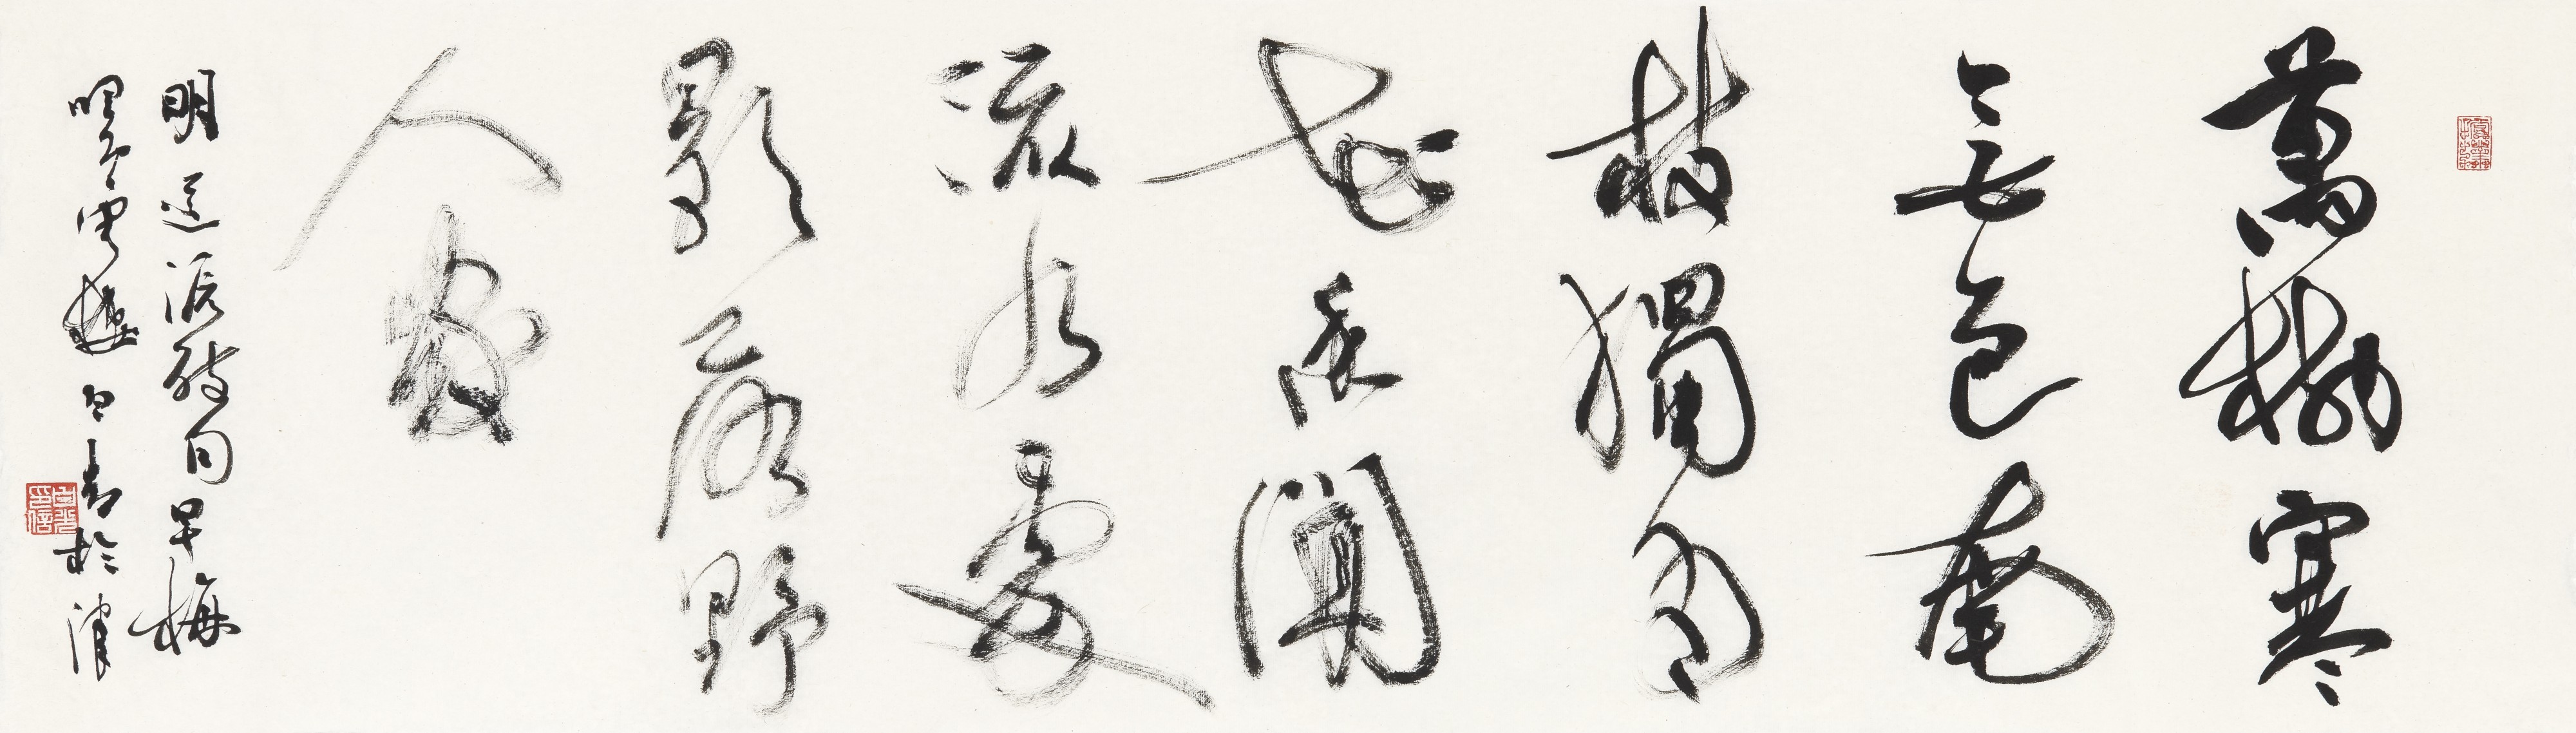 萬樹寒
無色南
枝獨有
花香聞
流水處
影落野
人家
明道源詩句早梅
於津